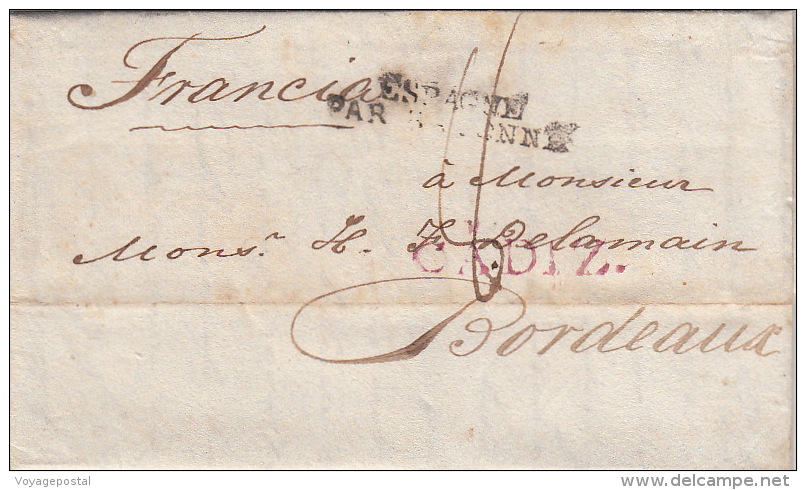 Francia
ESPAGNE
PAR BAYONNE
à Monsieur
Mons.r H. F. Delamain
CADIZ.
Bordeaux
Voyagepostal
delcampe.net